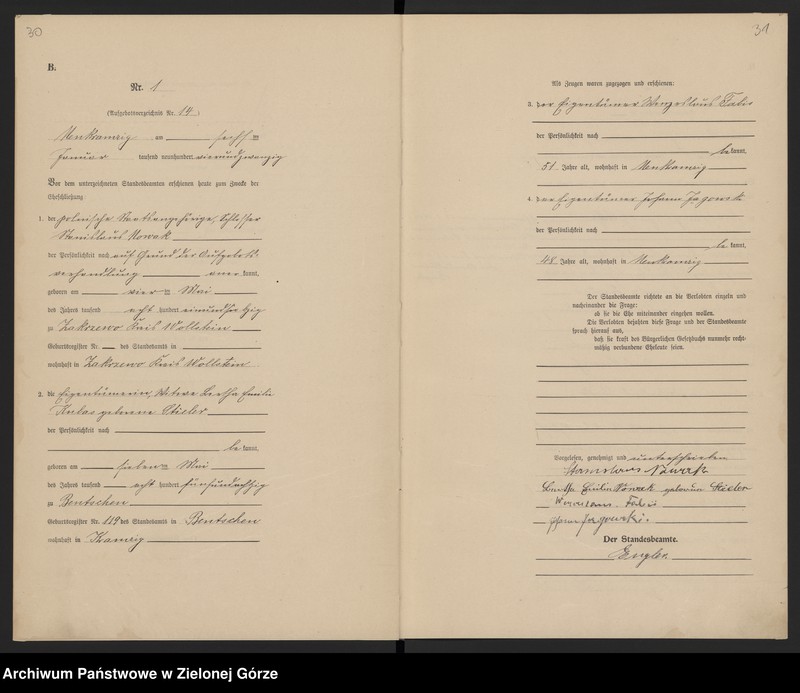 30
B.
Nr. 1
(Aufgebotsverzeichnis Nr. 14)
am sechsten
Januar tausend neunhundert vierundzwanzig
Vor dem unterzeichneten Standesbeamten erschienen heute zum Zwecke der
Eheschließung:
1. der polnische Staatsangehörige, Schlosser
Stanislaus Nowak
der Persönlichkeit nach auf Grund der Aufgebots-
verhandlung anerkannt,
geboren am vierten Mai
des Jahres tausend acht hundert
zu Zakrzewo Kreis Wollstein
Geburtsregister Nr. des Standesamts in
wohnhaft in Zakrzewo Kreis Wollstein
2. die Eigentümerin, Witwe Bertha Emilie
geborene Stieler
der Persönlichkeit nach
bekannt,
geboren am siebenten Mai
des Jahres tausend acht hundert fünfundachtzig
zu Bentschen
Geburtsregister Nr. 119 des Standesamts in Bentschen
wohnhaft in Kramzig
31
Als Zeugen waren zugezogen und erschienen:
3. der Eigentümer
der Persönlichkeit nach
bekannt,
51 Jahre alt, wohnhaft in
4. der Eigentümer Johann
der Persönlichkeit nach
bekannt,
48 Jahre alt, wohnhaft in
Der Standesbeamte richtete an die Verlobten einzeln und
nacheinander die Frage:
ob sie die Ehe miteinander eingehen wollen.
Die Verlobten bejahten diese Frage und der Standesbeamte
sprach hierauf aus,
daß sie kraft des Bürgerlichen Gesetzbuchs nunmehr recht-
mäßig verbundene Eheleute seien.
Vorgelesen, genehmigt und unterschrieben
Stanislaus Nowak
Bertha Emilie Nowak geborene Stieler
Johann
Der Standesbeamte.
Engler
Archiwum Państwowe w Zielonej Górze